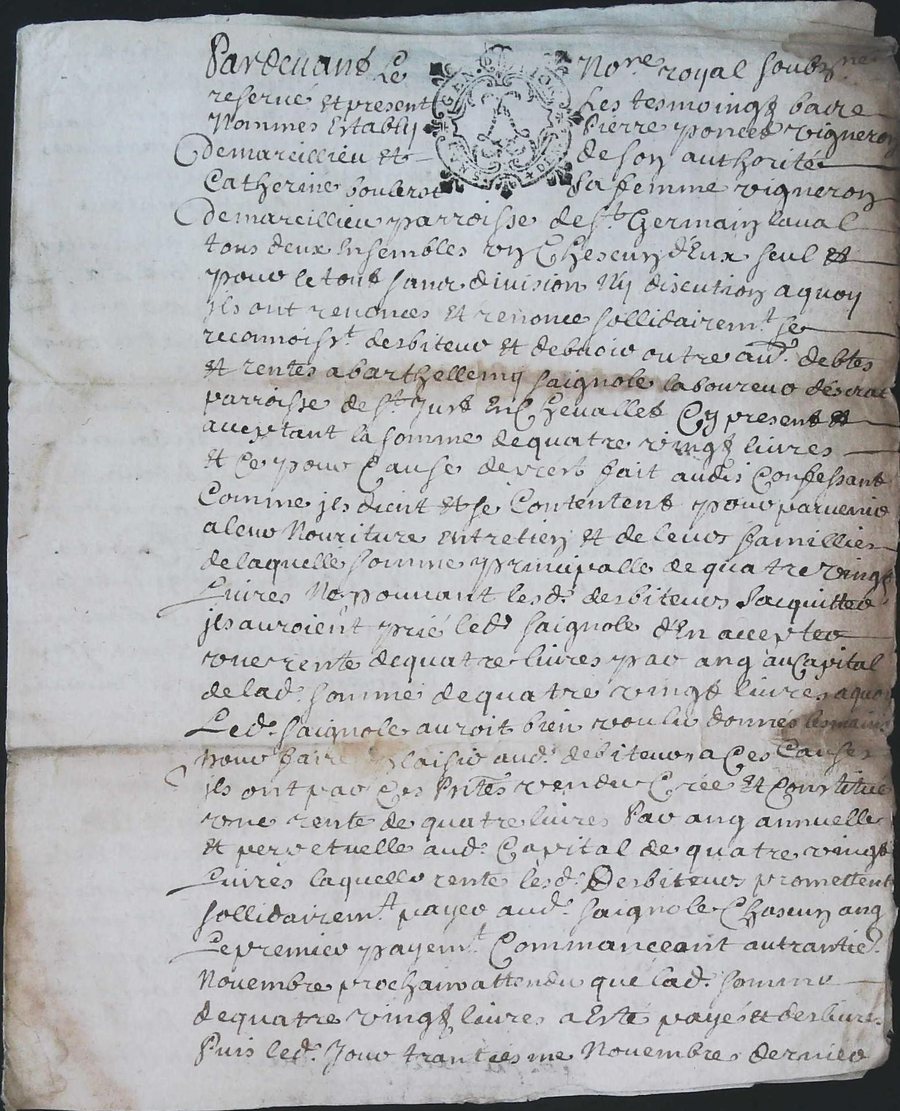 Pardevant Le Nore royal soubzne
reservé et present Les tesmoingt
Nommes Establiy Pierre poncet vigneron
Demareillieu et de son authorité
Catherine boulerot sa femme vigneron
Demareillieu parroisse de st Germain laval
tous deux Ensembles un Chescun d'Eux seul et
pour le tout sans division Ny discution a quoy
jls ont renonces et renonce sollidairemt se
reconoisst desbiteur et debvoir outre autr debtes
et rentes a barthellemy saignole laboureur
parroisse de st Just En Chevallet Cy present et
acceptant la somme de quatre vingt livres
et Ce pour Cause de prest fait audis Confessant
Comme jls dient et se Contentent pour parvenir
a leur Nouriture entretien et de leurs famillies
de laquelle somme principalle de quatre vingt
Livres Ne pouvant lesd. desbiteurs sacquitter
jls auroient prié led. saignole d'En accepter
une rente de quatre livres par ang au Capital
de lad. somme de quatre vingt livres a quoy
Led. saignole auroit bien voulu donner les mains
pour faire plaisir aud. debiteurs a Ces Causes
jls ont par Ces Pntes vendu Crée et Constitue
une rente de quatre livres Par ang annuelle
et perpetuelle aud. Capital de quatre vingt
Livres laquelle rente lesd. Desbiteurs promettent
sollidairemt payer aud. saignole Chascun ang
Le premier payemt Commanceant au trantie
Novembre prochain attendu que lad. somme
de quatre vingt livres a Esté payé et deslivre
Puis led. Jour trantiesme Novembre dernier